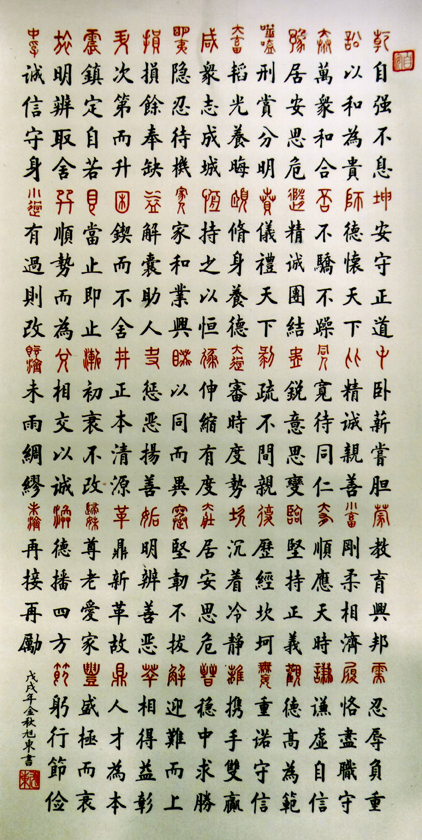 乾自强不息坤安守正道屯卧薪嘗胆蒙教育興邦需忍辱負重
訟以和為貴師德懷天下比精誠親善小畜剛柔相濟履恪盡職守
泰萬衆和合否不驕不躁同人寬待同仁大有順應天時謙謙虛自信
豫居安思危隨精诚團結蠱銳意思變臨堅持正義觀德高為範
噬嗑刑賞分明賁儀禮天下剝疏不間親復歷經坎坷無妄重诺守信
大畜韜光養晦頤脩身養德大過審時度勢坎沉着冷静離携手雙贏
咸衆志成城恒持之以恒遯伸縮有度大壯居安思危晉穩中求勝
明夷隐忍待機家人家和業興睽以同而異蹇堅韌不拔解迎難而上
損損餘奉缺益解囊助人夬惩恶揚善姤明辨善恶萃相得益彰
升次第而升困鍥而不舍井正本清源革鼎新革故鼎人才為本
震鎮定自若艮當止即止漸初衷不改歸妹尊老愛家豐盛極而衰
旅明辨取舍巽順勢而為兌相交以诚渙德播四方節躬行節儉
中孚诚信守身小過有過則改既濟未雨綢繆未濟再接再勵
戊戌年金秋旭東書